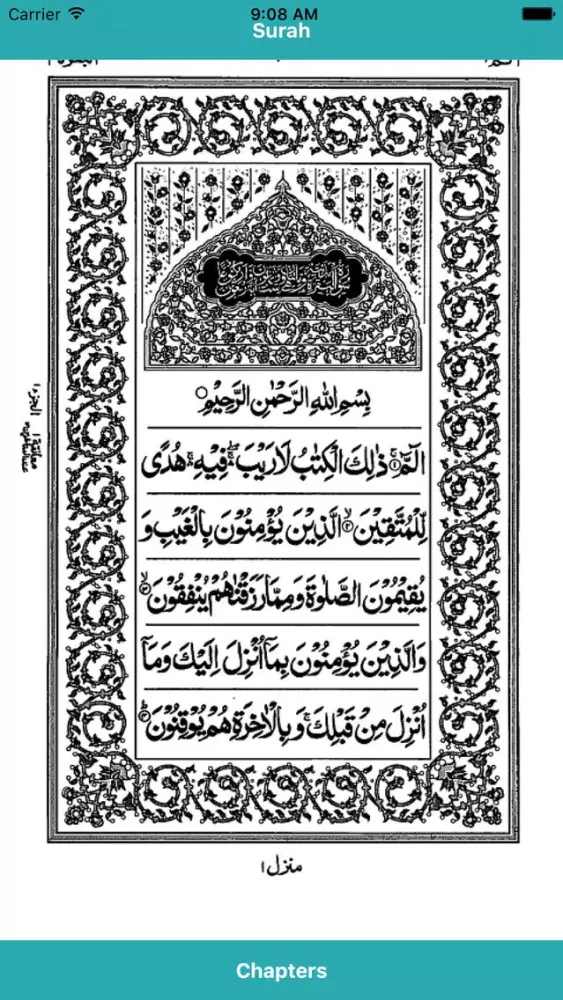 Carrier 9:08 AM
Surah
بِسْمِ اللّٰهِ الرَّحْمٰنِ الرَّحِيْمِ
الٓمّٓ ۚ ۱ ذٰلِكَ الْكِتٰبُ لَا رَيْبَ ۛ فِيْهِ ۛ هُدًى
لِّلْمُتَّقِيْنَ ۙ ۲ الَّذِيْنَ يُؤْمِنُوْنَ بِالْغَيْبِ وَ
يُقِيْمُوْنَ الصَّلٰوةَ وَمِمَّا رَزَقْنٰهُمْ يُنْفِقُوْنَ ۙ ۳
وَالَّذِيْنَ يُؤْمِنُوْنَ بِمَآ اُنْزِلَ اِلَيْكَ وَمَآ
اُنْزِلَ مِنْ قَبْلِكَ ۚ وَبِالْاٰخِرَةِ هُمْ يُوْقِنُوْنَ ؕ ۴
الجزء ۱
معانقة ۱
منزل ۱
Chapters